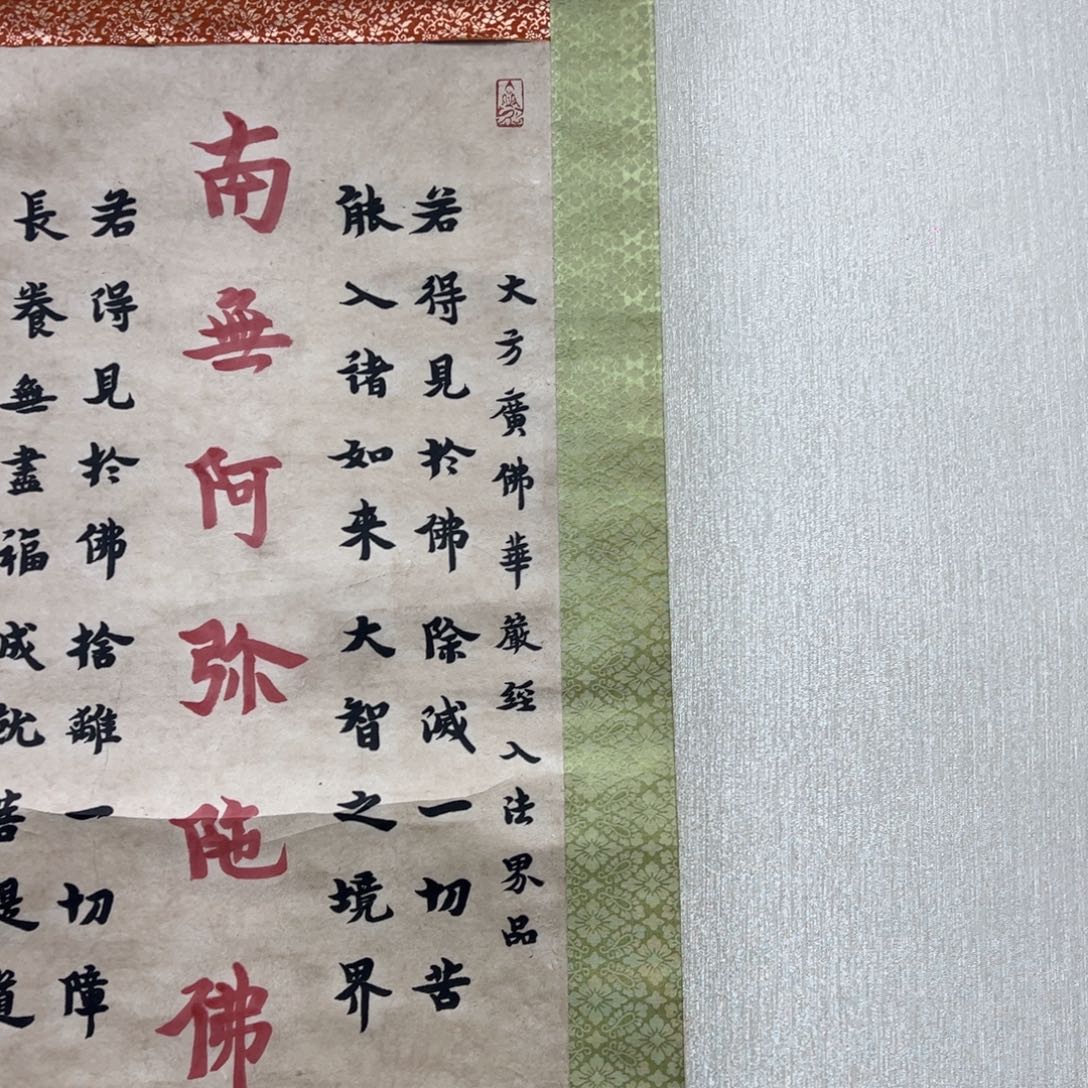 大方廣佛華嚴經入法界品
若得見於佛除滅一切苦
能入諸如来大智之境界
南無阿弥陁佛
若得見於佛捨離一切障
長養無盡福成就菩提道